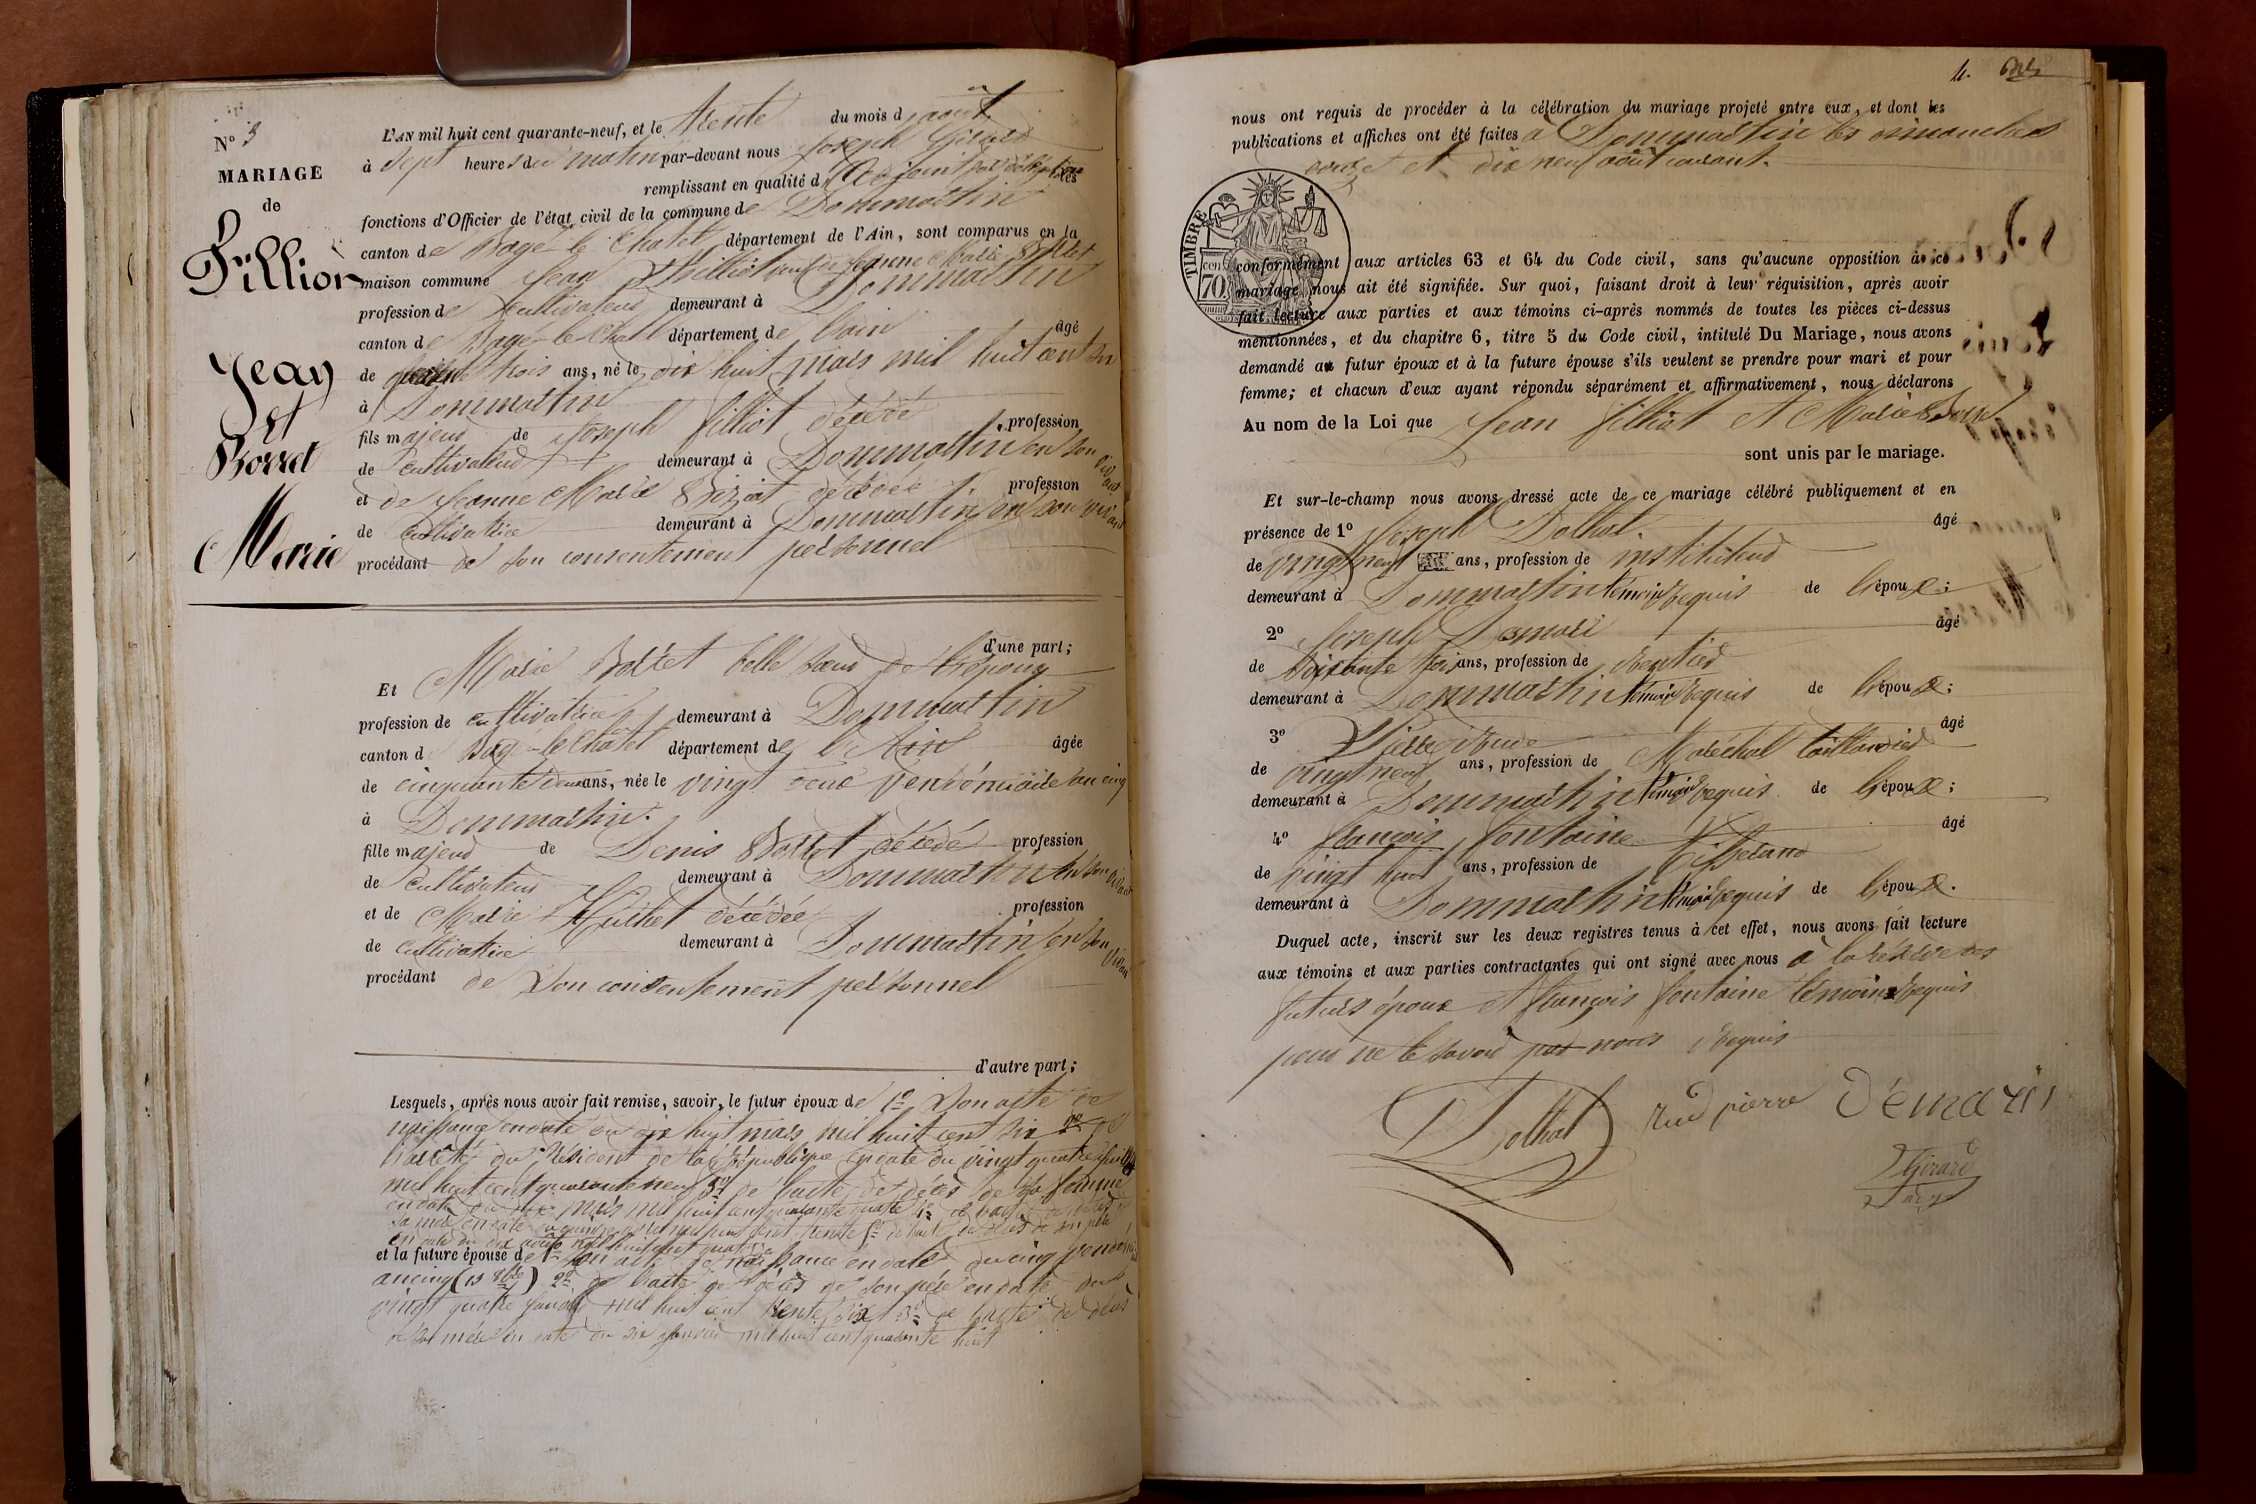 N° 3
MARIAGE
de
Fillion
Jean
et
Borret
Marie
L'AN mil huit cent quarante-neuf, et le trente du mois d août
à sept heures du matin par-devant nous Joseph Gérard
remplissant en qualité d'Adjoint par délégation les
fonctions d'Officier de l'état civil de la commune de Dommartin
canton de Bagé le Chatel département de l'Ain, sont comparus en la
maison commune Jean Filliot veuf de Jeanne Marie Borret
profession de cultivateur demeurant à Dommartin
canton de Bagé-le-Chatel département de l'ain âgé
de quarante trois ans, né le dix huit mars mil huit cent six
à Dommartin
fils majeur de Joseph filliot décédé profession
de cultivateur demeurant à Dommartin en son vivant
et de Jeanne Marie Boziat décédée profession
de cultivatrice demeurant à Dommartin en son vivant
procédant de son consentement personnel
d'une part;
Et Marie Borret belle sœur de l'époux
profession de cultivatrice demeurant à Dommartin
canton de Bagé-le-Châtel département de l'Ain âgée
de cinquante deux ans, née le vingt deux vendémiaire an cinq
à Dommartin.
fille majeure de Denis Borret décédé profession
de cultivateur demeurant à Dommartin en son vivant
et de Marie décédée profession
de cultivatrice demeurant à Dommartin en son vivant
procédant de son consentement personnel
d'autre part;
Lesquels, après nous avoir fait remise, savoir, le futur époux de 1° son acte de
naissance en date du dix huit mars mil huit cent six 2° de
l'arrêté du Président de la République en date du vingt quatre juillet
mil huit cent quarante neuf 3° de l'acte de décès de sa femme
en date du mars mil huit cent quarante quatre 4° de l'acte de décès de
sa mère en date du quinze mil huit cent trente 5° de l'acte de décès de son père
en date du dix août mil huit cent quatorze
et la future épouse de 1° son acte de naissance en date du cinq vendémiaire
an cinq (13 8bre) 2° de l'acte de décès de son père en date du
vingt quatre janvier mil huit cent trente six 3° de l'acte de décès
de sa mère en date du six janvier mil huit cent quarante huit
4.
nous ont requis de procéder à la célébration du mariage projeté entre eux, et dont les
publications et affiches ont été faites à Dommartin les dimanches
douze et dix neuf août courant.
TIMBRE
cen
70
conformément aux articles 63 et 64 du Code civil, sans qu'aucune opposition à ce
mariage nous ait été signifiée. Sur quoi, faisant droit à leur réquisition, après avoir
fait lecture aux parties et aux témoins ci-après nommés de toutes les pièces ci-dessus
mentionnées, et du chapitre 6, titre 5 du Code civil, intitulé Du Mariage, nous avons
demandé au futur époux et à la future épouse s'ils veulent se prendre pour mari et pour
femme; et chacun d'eux ayant répondu séparément et affirmativement, nous déclarons
Au nom de la Loi que Jean filliot et Marie Borret
sont unis par le mariage.
Et sur-le-champ nous avons dressé acte de ce mariage célébré publiquement et en
présence de 1° Joseph Dolhat. âgé
de vingt neuf ans, profession de instituteur
demeurant à Dommartin témoin requis de l'époux;
2° Joseph Demari âgé
de soixante trois ans, profession de rentier
demeurant à Dommartin témoin requis de l'époux;
3° Pierre Rude âgé
de vingt neuf ans, profession de Maréchal taillandier
demeurant à Dommartin témoin requis de l'époux;
4° françois fontaine âgé
de vingt huit ans, profession de Tisserand
demeurant à Dommartin témoin requis de l'époux.
Duquel acte, inscrit sur les deux registres tenus à cet effet, nous avons fait lecture
aux témoins et aux parties contractantes qui ont signé avec nous à la réserve des
futurs époux et françois fontaine témoin requis
pour ne le savoir par nous requis
Dolhat rud pierre Démaris
Gérard
adj